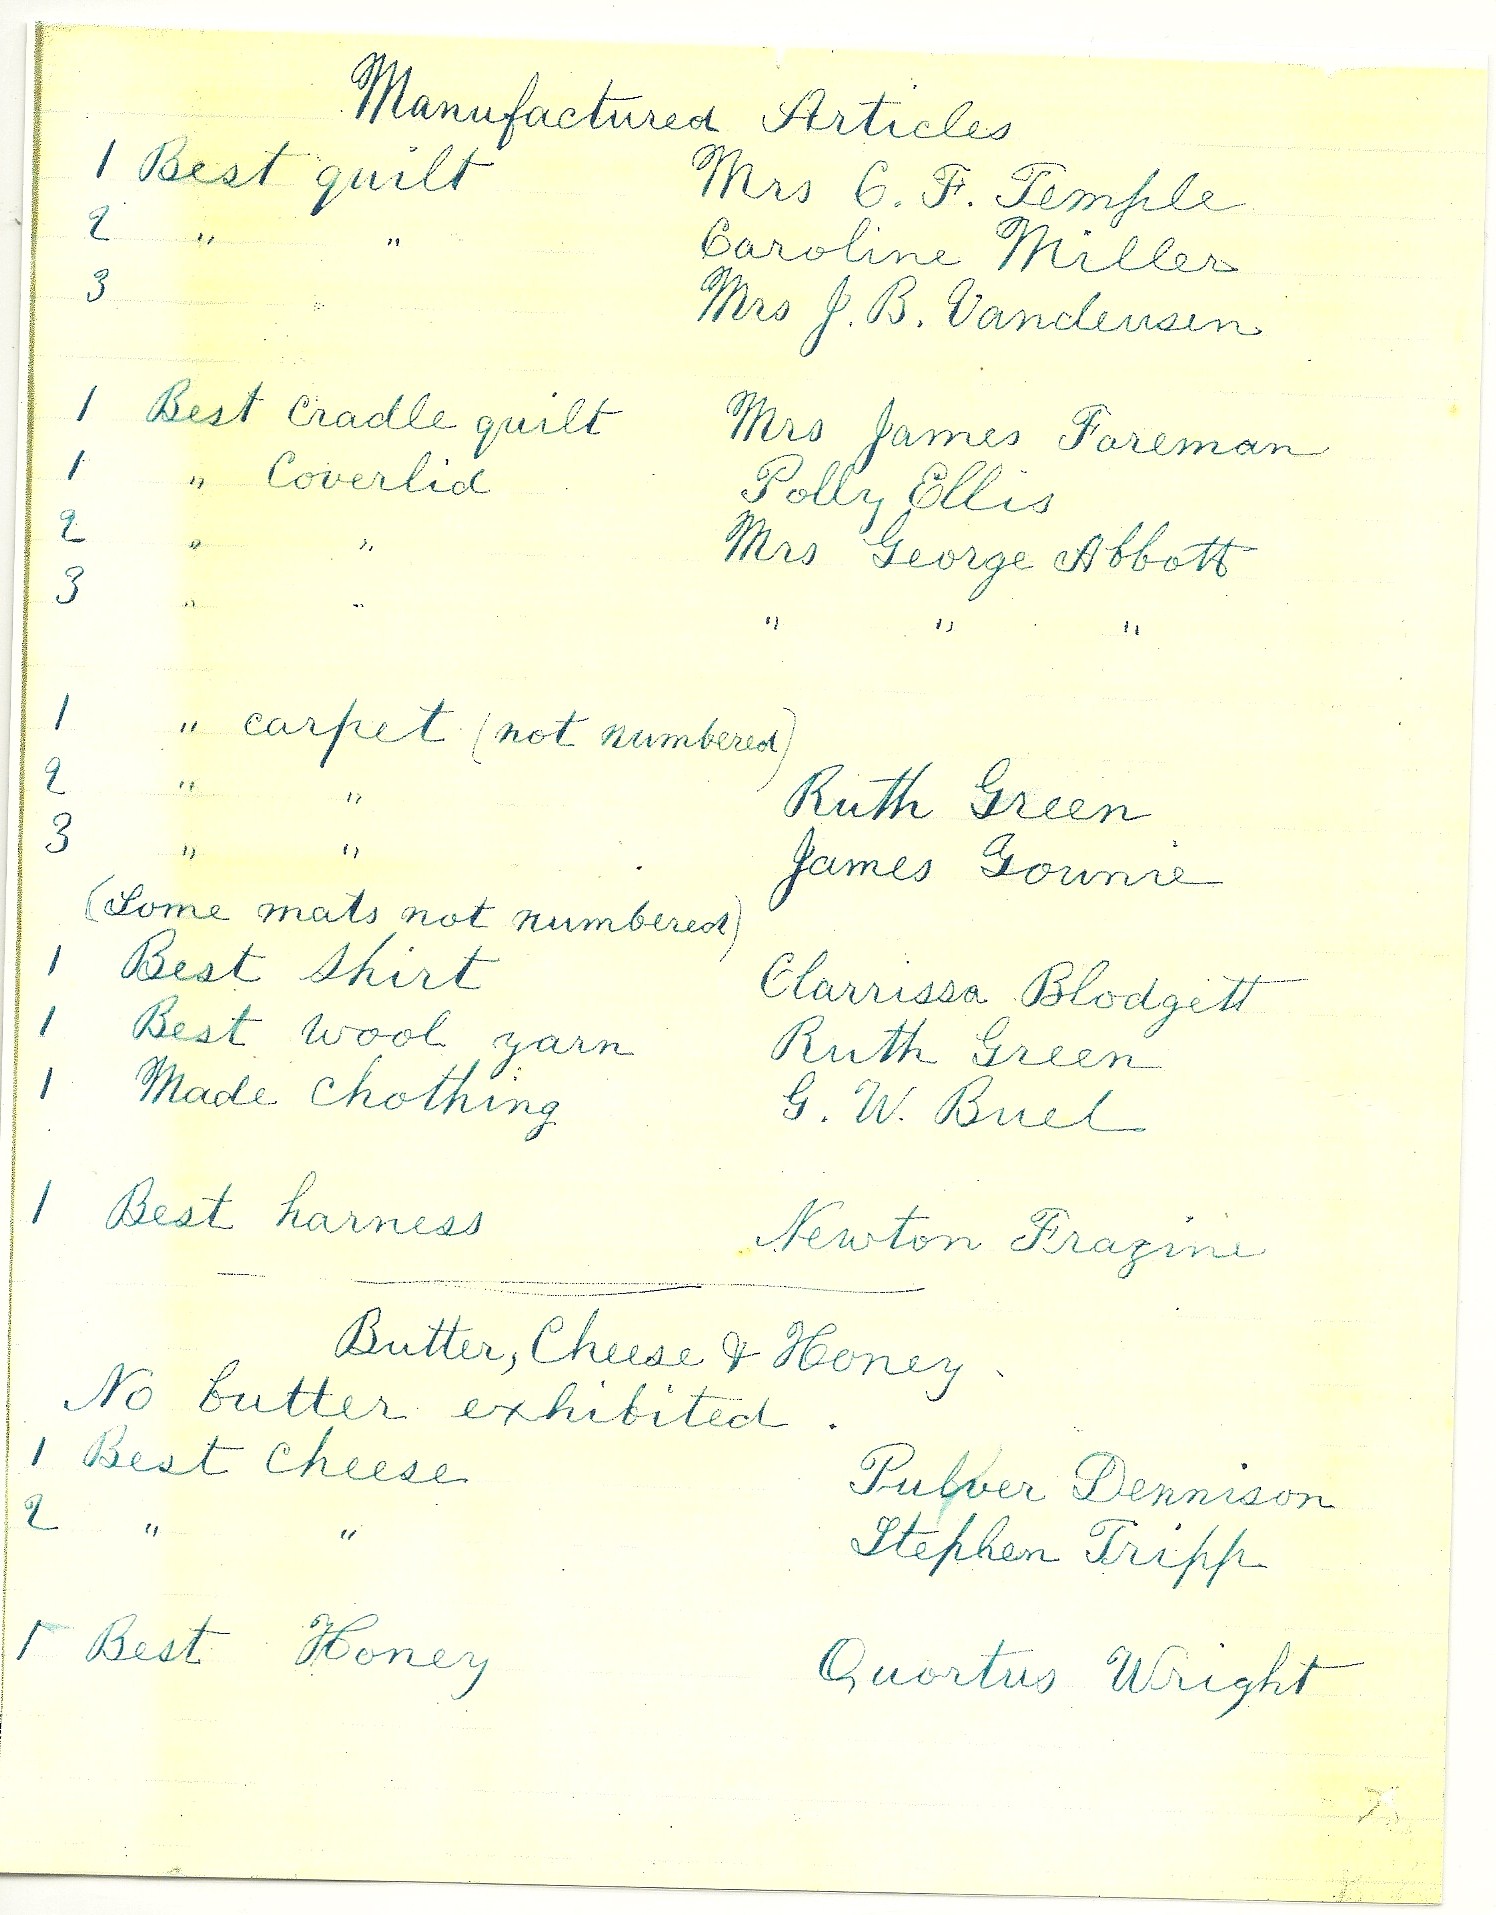 Manufactured Articles
1 Best quilt Mrs C. F. Temple
2 " " Caroline Miller
3 " Mrs J. B. Vandeusen
1 Best Cradle quilt Mrs James Foreman
1 " Coverlid Polly Ellis
2 " " Mrs George Abbott
3 " " " " "
1 " carpet (not numbered)
2 " " Ruth Green
3 " " James Gownie
(Some mats not numbered)
1 Best Shirt Clarrissa Blodgett
1 Best wool yarn Ruth Green
1 Made Chothing G. W. Buel
1 Best harness Newton Frazine
Butter, Cheese & Honey.
No butter exhibited.
1 Best Cheese Pulver Dennison
2 " " Stephen Tripp
1 Best Honey Quortus Wright